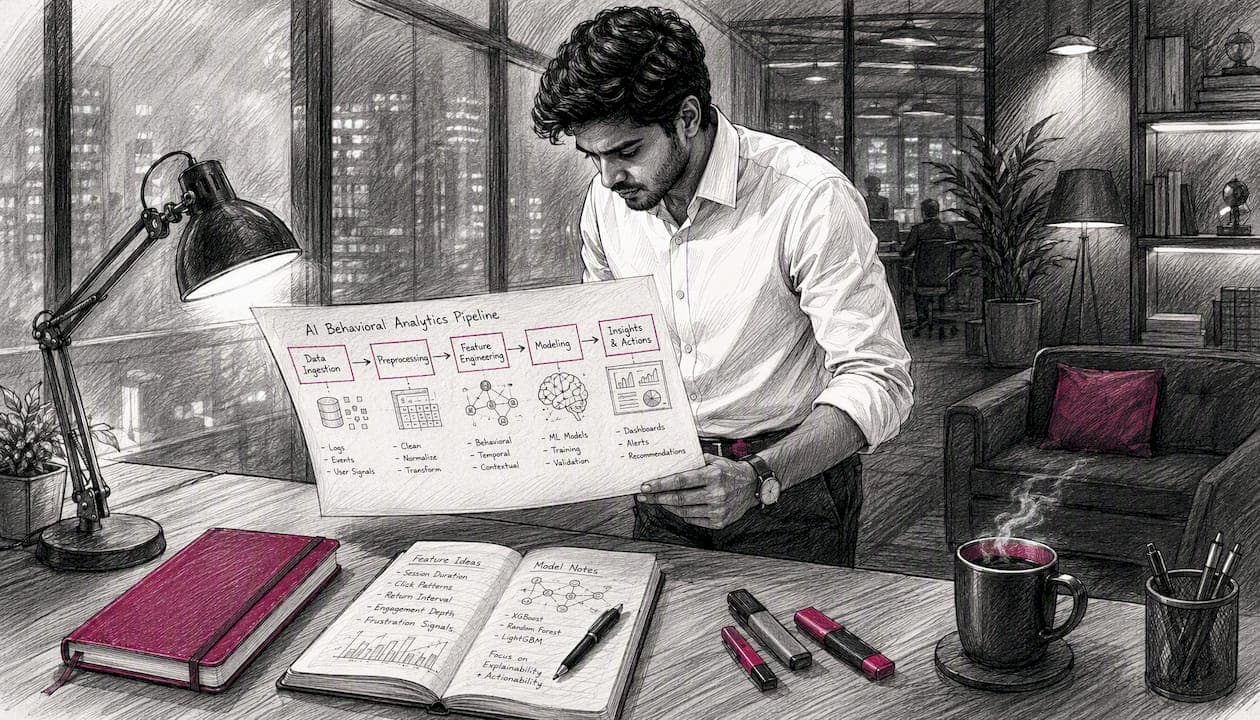 AI Behavioral Analytics Pipeline
Data
Ingestion
Preprocessing
Feature
Engineering
Modeling
Insights
& Actions
- Logs
- Events
- User Signals
- Clean
- Normalize
- Transform
- Behavioral
- Temporal
- Contextual
- ML Models
- Training
- Validation
- Dashboards
- Alerts
- Recommendations
Feature Ideas
- Session Duration
- Click Patterns
- Return Interval
- Engagement Depth
- Frustration Signals
Model Notes
- XGBoost
- Random Forest
- LightGBM
Focus on
Explainability
+ Actionability